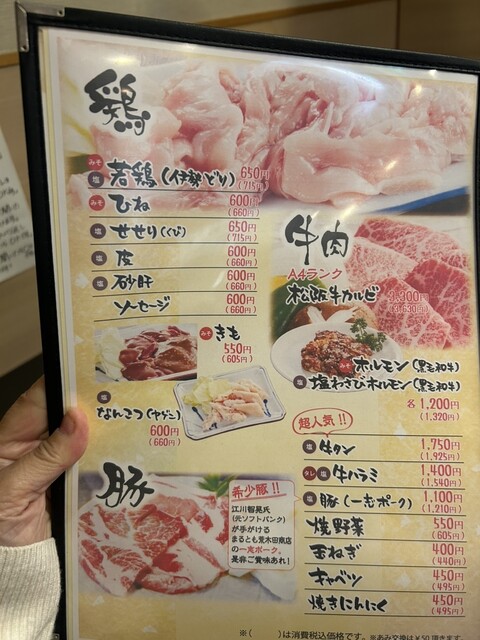 鶏
みそ 塩 若鶏(伊勢どり) 650円 (715円)
みそ ひね 600円 (660円)
塩 せせり(くび) 650円 (715円)
塩 皮 600円 (660円)
塩 砂肝 600円 (660円)
ソーセージ 600円 (660円)
みそ きも
550円
(605円)
塩 なんこつ(ヤゲン)
600円
(660円)
豚
希少豚!!
江川智晃氏
(元ソフトバンク)
が手がける
まるとも荒木田商店
の一志ポーク。
是非ご賞味あれ!
牛肉
A4ランク
松阪牛カルビ 3,300円 (3,630円)
みそ ホルモン(黒毛和牛)
塩 塩わさびホルモン(黒毛和牛)
各1,200円
(1,320円)
超人気!!
塩 牛タン 1,750円 (1,925円)
タレ 塩 牛ハラミ 1,400円 (1,540円)
塩 豚(一志ポーク) 1,100円 (1,210円)
焼野菜 550円 (605円)
玉ねぎ 400円 (440円)
キャベツ 450円 (495円)
焼きにんにく 450円 (495円)
※( )は消費税込価格です。※あみ交換は¥50頂きます。